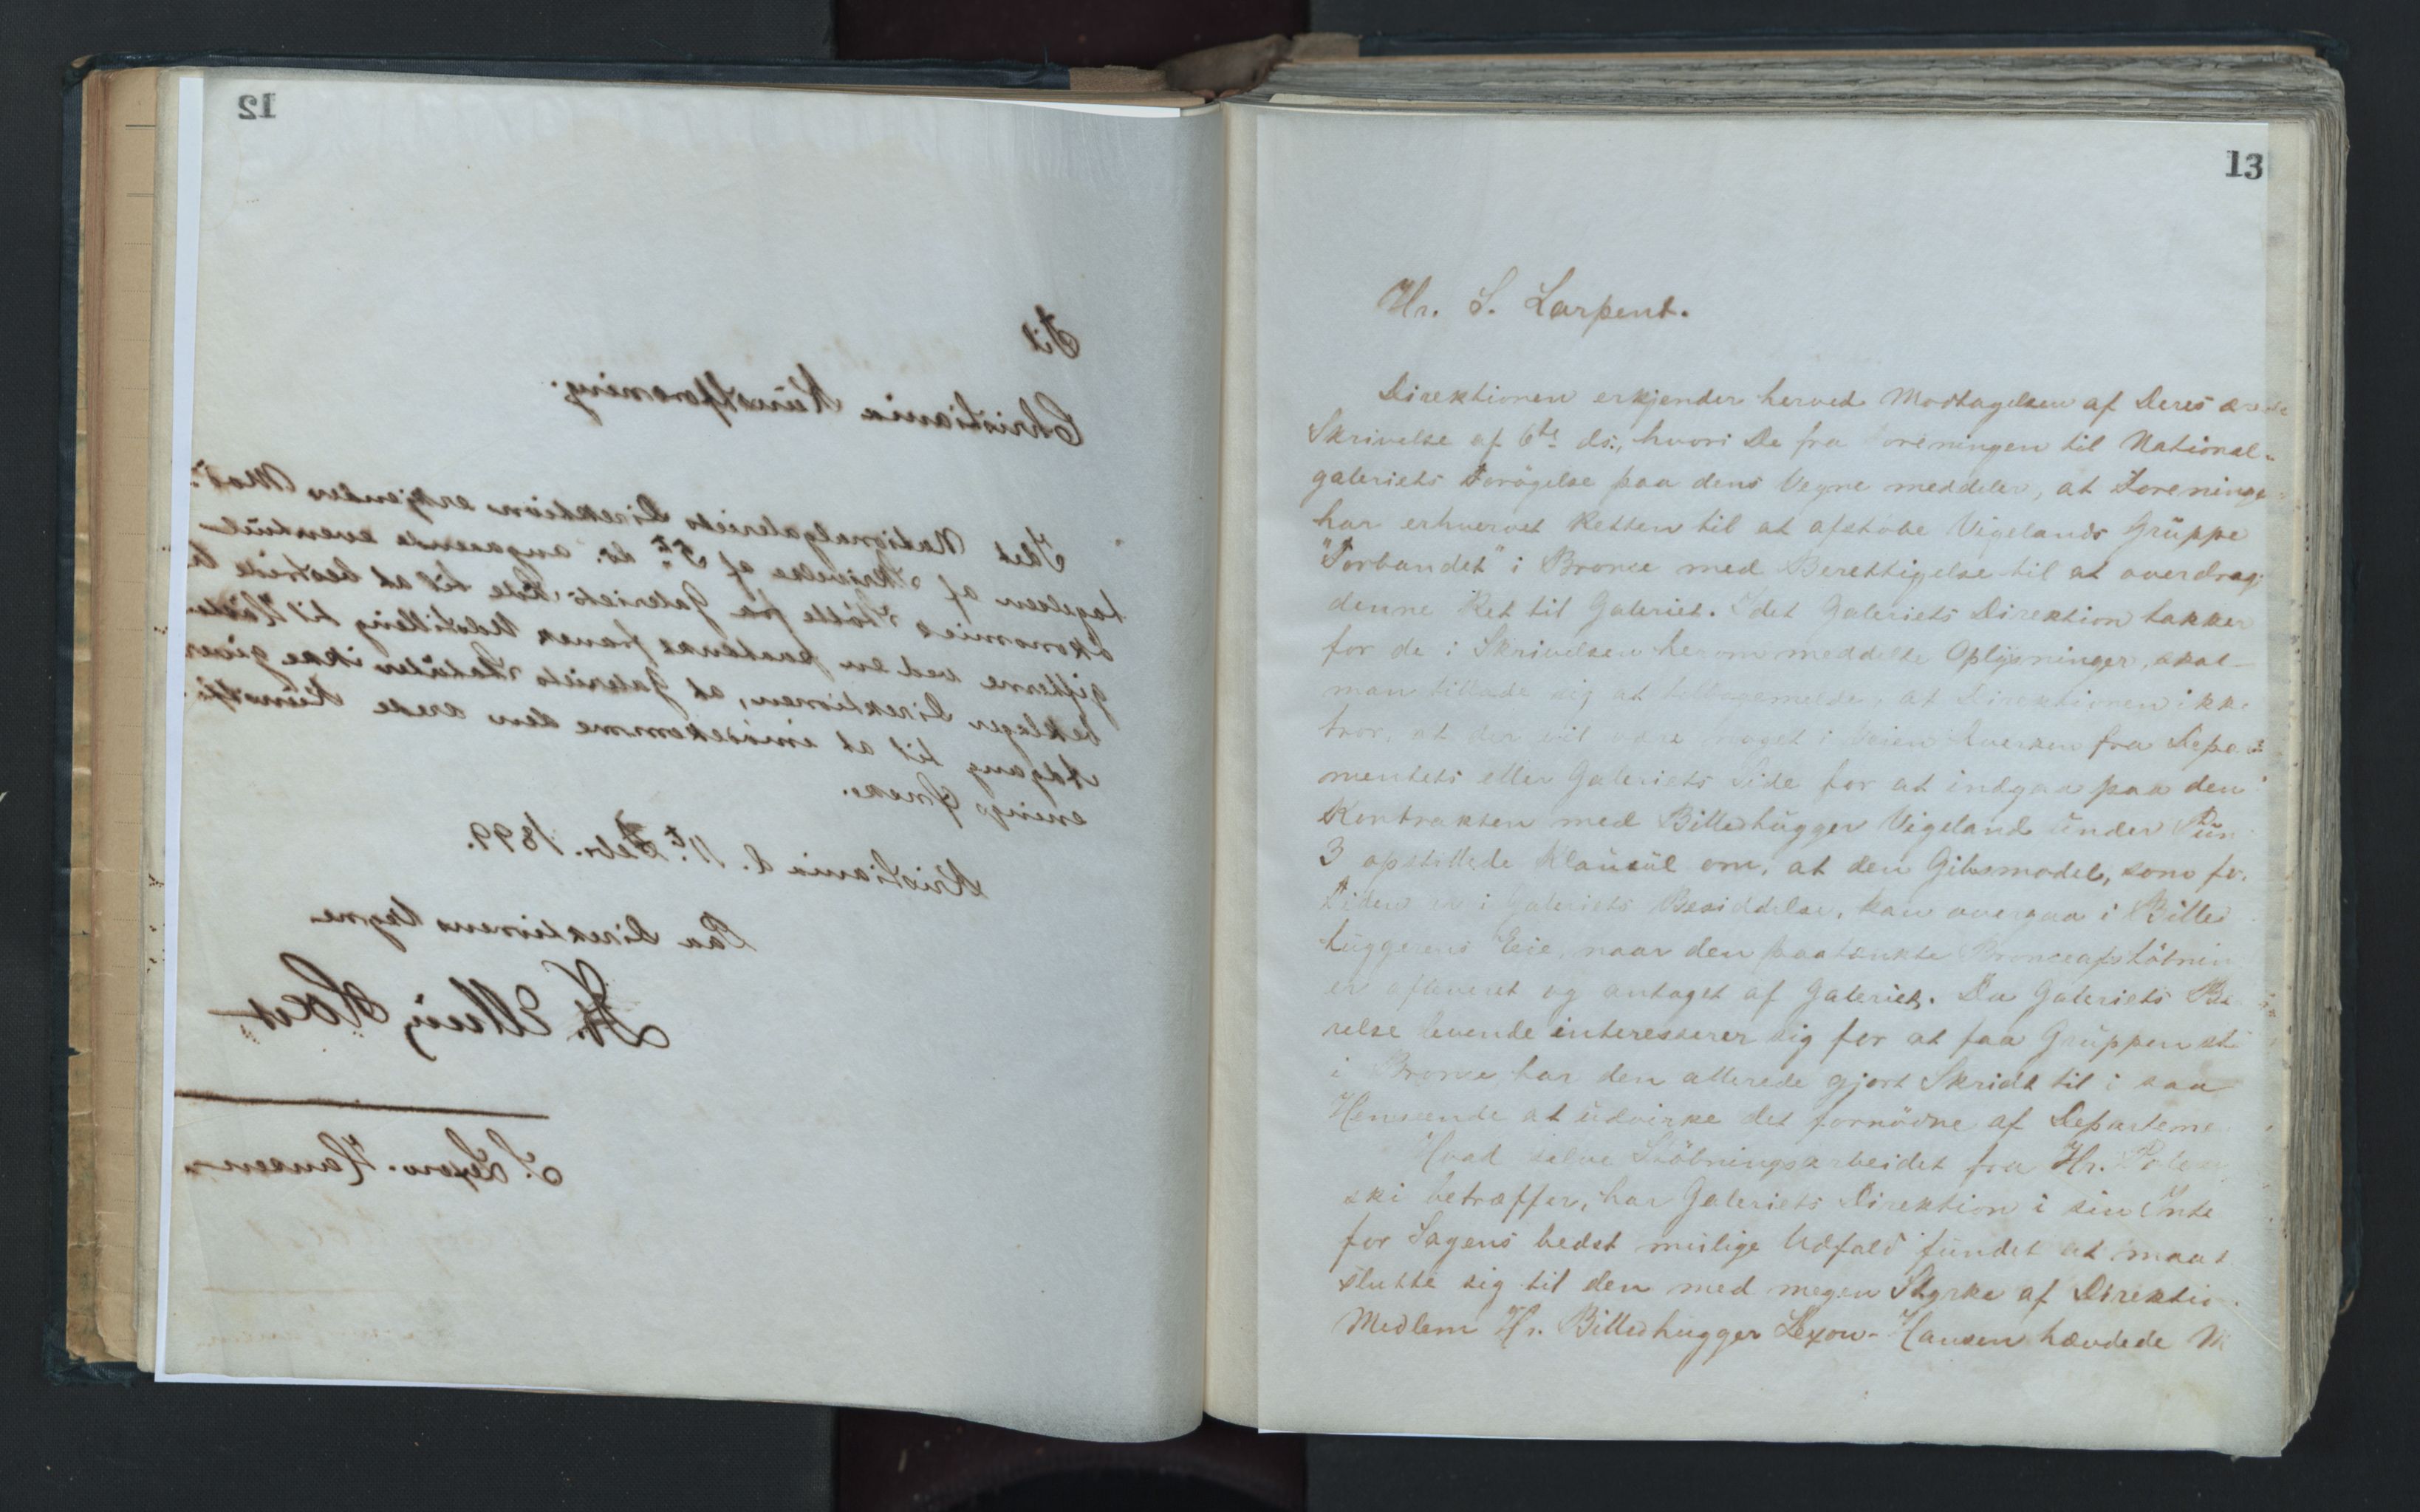 12
Til
Christiania Kunstforening.
Idet Nationalgaleriets Direktion erkjender Mod-
tagelsen af Skrivelse af 5te ds. angaaende eventuel
økonomisk Støtte fra Galeriets Side til at bestride
gifterne ved en paatænkt fransk Udstilling til
beklager Direktionen, at Galeriets Statuter ikke giver
Adgang til at imødekomme den ærede Kunstfor-
enings Ønske.
Kristiania d. 11te Febr. 1899.
Paa Direktionens Vegne
S. Lexow-Hansen.
13
Hr. S. Larpent.
Direktionen erkjender herved Modtagelsen af Deres ærede
Skrivelse af 6te ds., hvori De fra Foreningen til National-
galeriets Forøgelse paa dens Vegne meddeler, at Forening
har erhvervet Retten til at afstøbe Vigelands Gruppe
"Forbandet" i Bronce med Berettigelse til at overdrag
denne Ret til Galeriet. Idet Galeriets Direktion takker
for de i Skrivelsen herom meddelte Oplysninger, skal
man tillade sig at tilbagemelde, at Direktionen ikke
tror, at der vil være noget i Veien hverken fra Depart
mentets eller Galeriets Side for at indgaa paa den i
Kontrakten med Billedhugger Vigeland under Pun
3 opstillede Klausul om, at den Gibsmodel, som for
Tiden er i Galeriets Besiddelse, kan overgaa i Billed
huggerens Eie, naar den paatænkte Bronceafstøbnin
er afleveret og antaget af Galeriet. Da Galeriets Be
relse levende interesserer sig for at faa Gruppen stø
i Bronce, har den allerede gjort Skridt til i saa
Henseende at udvirke det fornødne af Departeme
Hvad selve Støbningsarbeidet fra Hr.
ski betræffer, har Galeriets Direktion i sin Inte
for Sagens bedst mulige Udfald fundet at maat
slutte sig til den med megen Styrke af Direktio
Medlem Hr. Billedhugger Lexow-Hansen hævdede M